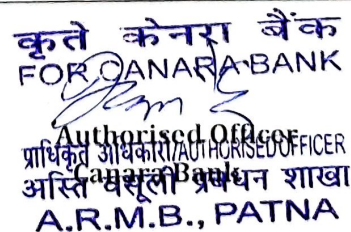 कृते केनरा बैंक
FOR CANARA BANK
Authorised Officer
प्राधिकृत अधिकारी/AUTHORISED OFFICER
Canara Bank
अस्ति वसूली प्रबंधन शाखा
A.R.M.B., PATNA